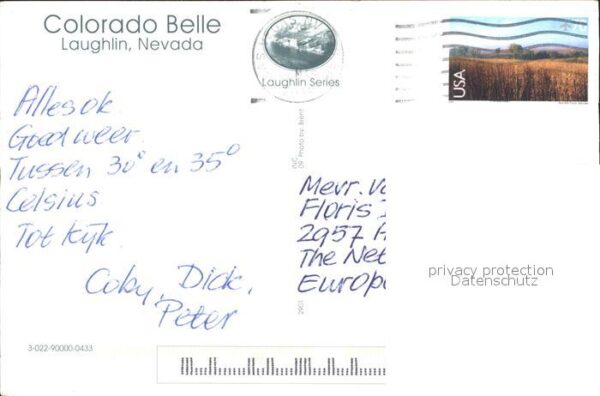 Colorado Belle
Laughlin, Nevada
Alles ok.
Goed weer.
Tussen 30° en 35°
Celsius
Tot Kijk.
Coby, Dick,
Peter
3-022-90000-0433
Laughlin Series
Photo by: Brent
2901
USA
Mevr.
Floris
2957
The Net
Europ
privacy protection
Datenschutz